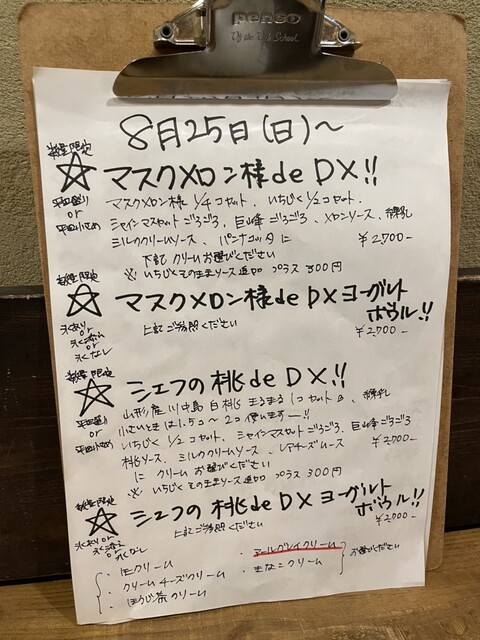 penco
Of the Old School
8月25日(日)〜
数量限定
マスクメロン様 de DX!!
平皿盛り
or
平皿小さめ
マスクメロン様 1/4コセット、いちじく1/2コセット、
シャインマスカットごろごろ、巨峰ごろごろ、メロンソース、練乳
ミルククリームソース、パンナコッタに
¥2,700-
下記 クリームお選びください
※いちじくその生ソース追加 プラス300円
数量限定
マスクメロン様 de DX ヨーグルト
ボウル!!
氷あり or
氷添え
or
氷なし
上記ご参照ください
¥2,700-
数量限定
シェフの桃 de DX!!
山形産 川中島白桃 まるまる1コセット
練乳
平皿盛り
or
平皿小さめ
小さいときは1.5コ〜2コ使います〜!!
いちじく 1/2コセット、シャインマスカットごろごろ、巨峰ごろごろ
桃ソース、ミルククリームソース、レアチーズムース
¥2,700-
に クリームお選びください
※いちじくその生ソース追加 プラス300円
数量限定
シェフの桃 de DX ヨーグルト
ボウル!!
氷あり or
氷添え
or
氷なし
上記ご参照ください
¥2,700-
・生クリーム
・アールグレイクリーム
お選びください
・クリームチーズクリーム
・きなこクリーム
・ほうじ茶クリーム